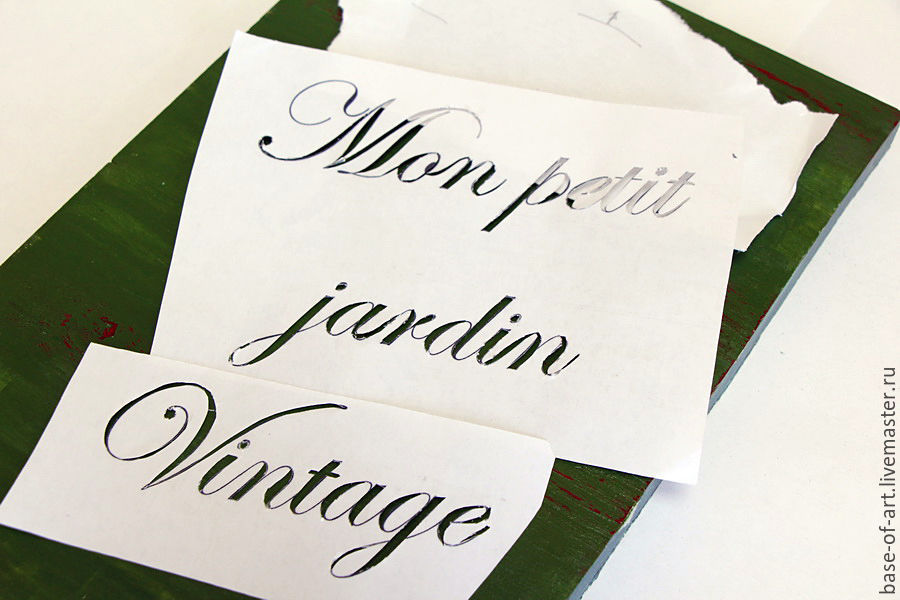 Mon petit
jardin
Vintage
base-of-art.livemaster.ru